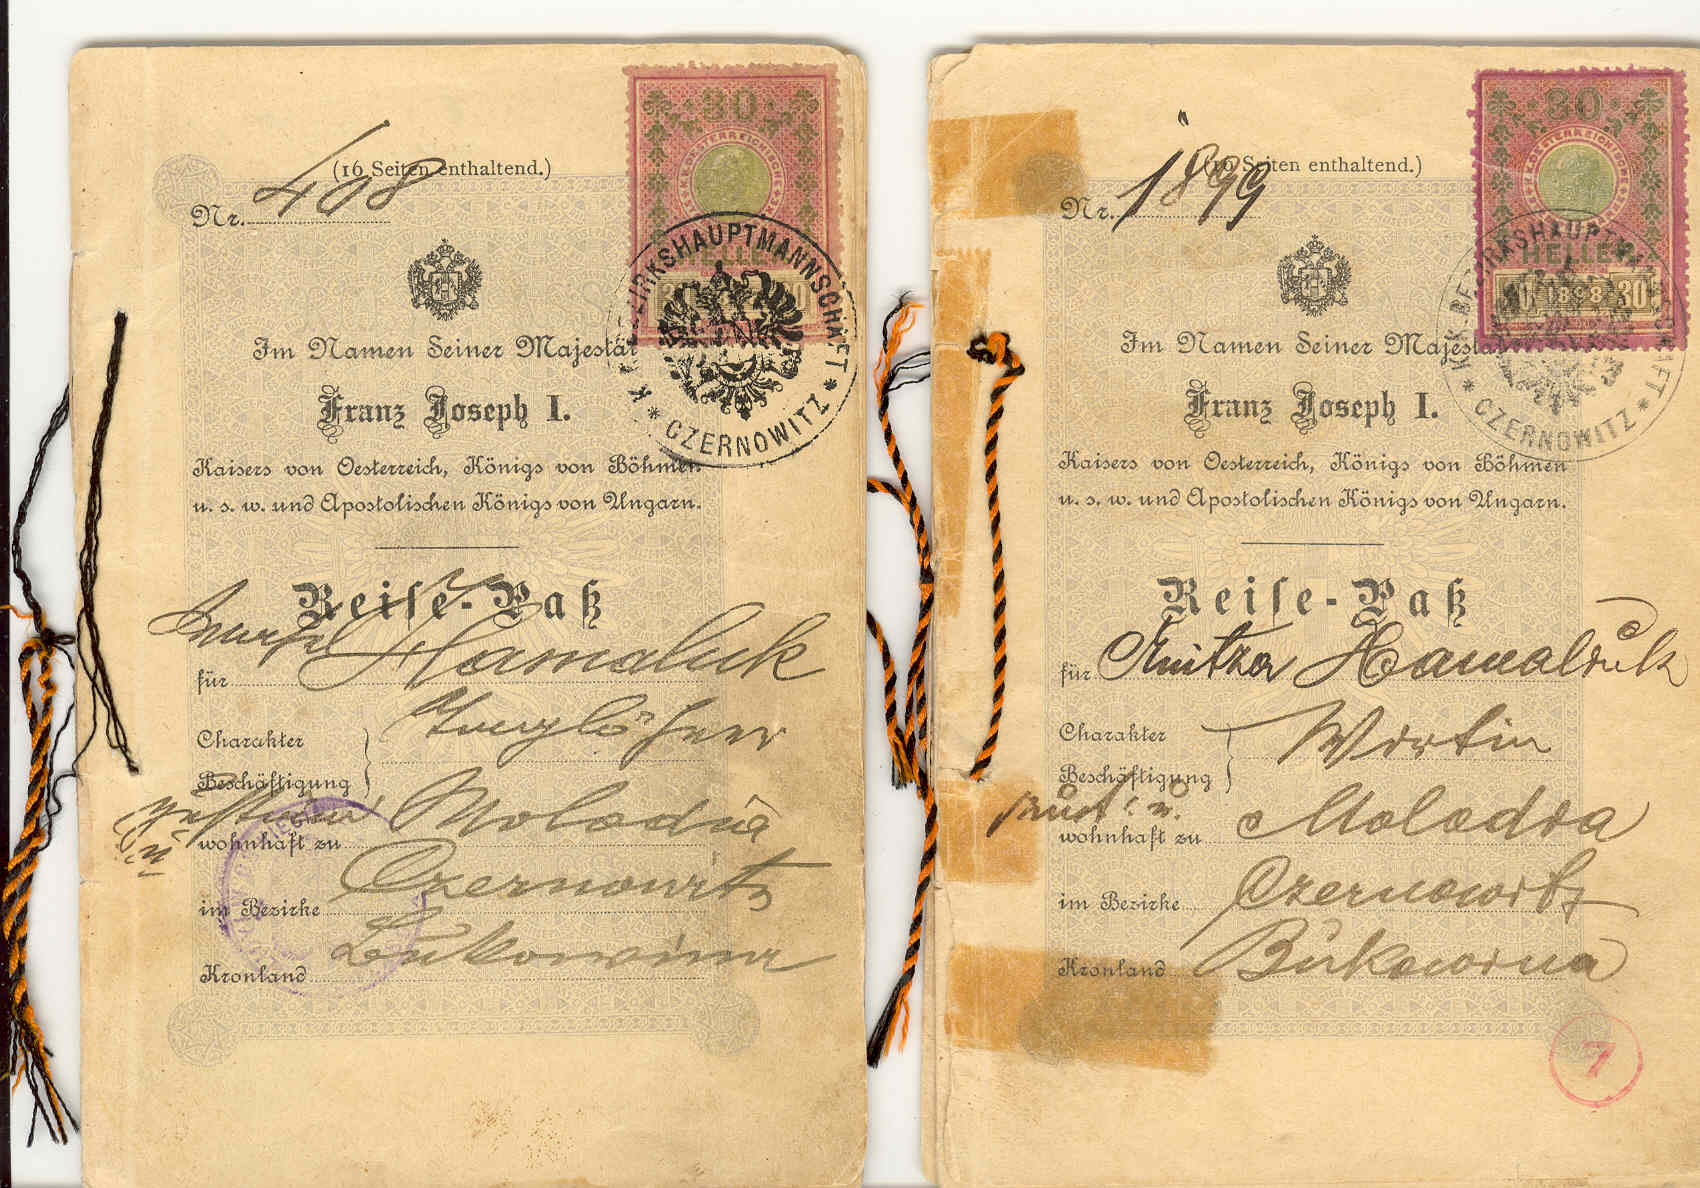 (16 Seiten enthaltend.)
Nr. 408
30
K.K. OESTERREICHISCHE
HELLER
K. K. BEZIRKSHAUPTMANNSCHAFT
* CZERNOWITZ *
Im Namen Seiner Majestät
Franz Joseph I.
Kaisers von Oesterreich, Königs von Böhmen
u. s. w. und Apostolischen Königs von Ungarn.
Reise-Paß
für Hamaluk
Charakter
Beschäftigung } Taglöhner
wohnhaft zu Molodia
im Bezirke Czernowitz
Kronland Bukowina
(16 Seiten enthaltend.)
Nr. 1899
30
K.K. OESTERREICHISCHE
HELLER
30 1898 30
K. K. BEZIRKSHAUPTMANNSCHAFT
* CZERNOWITZ *
Im Namen Seiner Majestät
Franz Joseph I.
Kaisers von Oesterreich, Königs von Böhmen
u. s. w. und Apostolischen Königs von Ungarn.
Reise-Paß
für Hamaliuk
Charakter
Beschäftigung } Wirtin
zust. u.
wohnhaft zu Molodia
im Bezirke Czernowitz
Kronland Bukowina
7